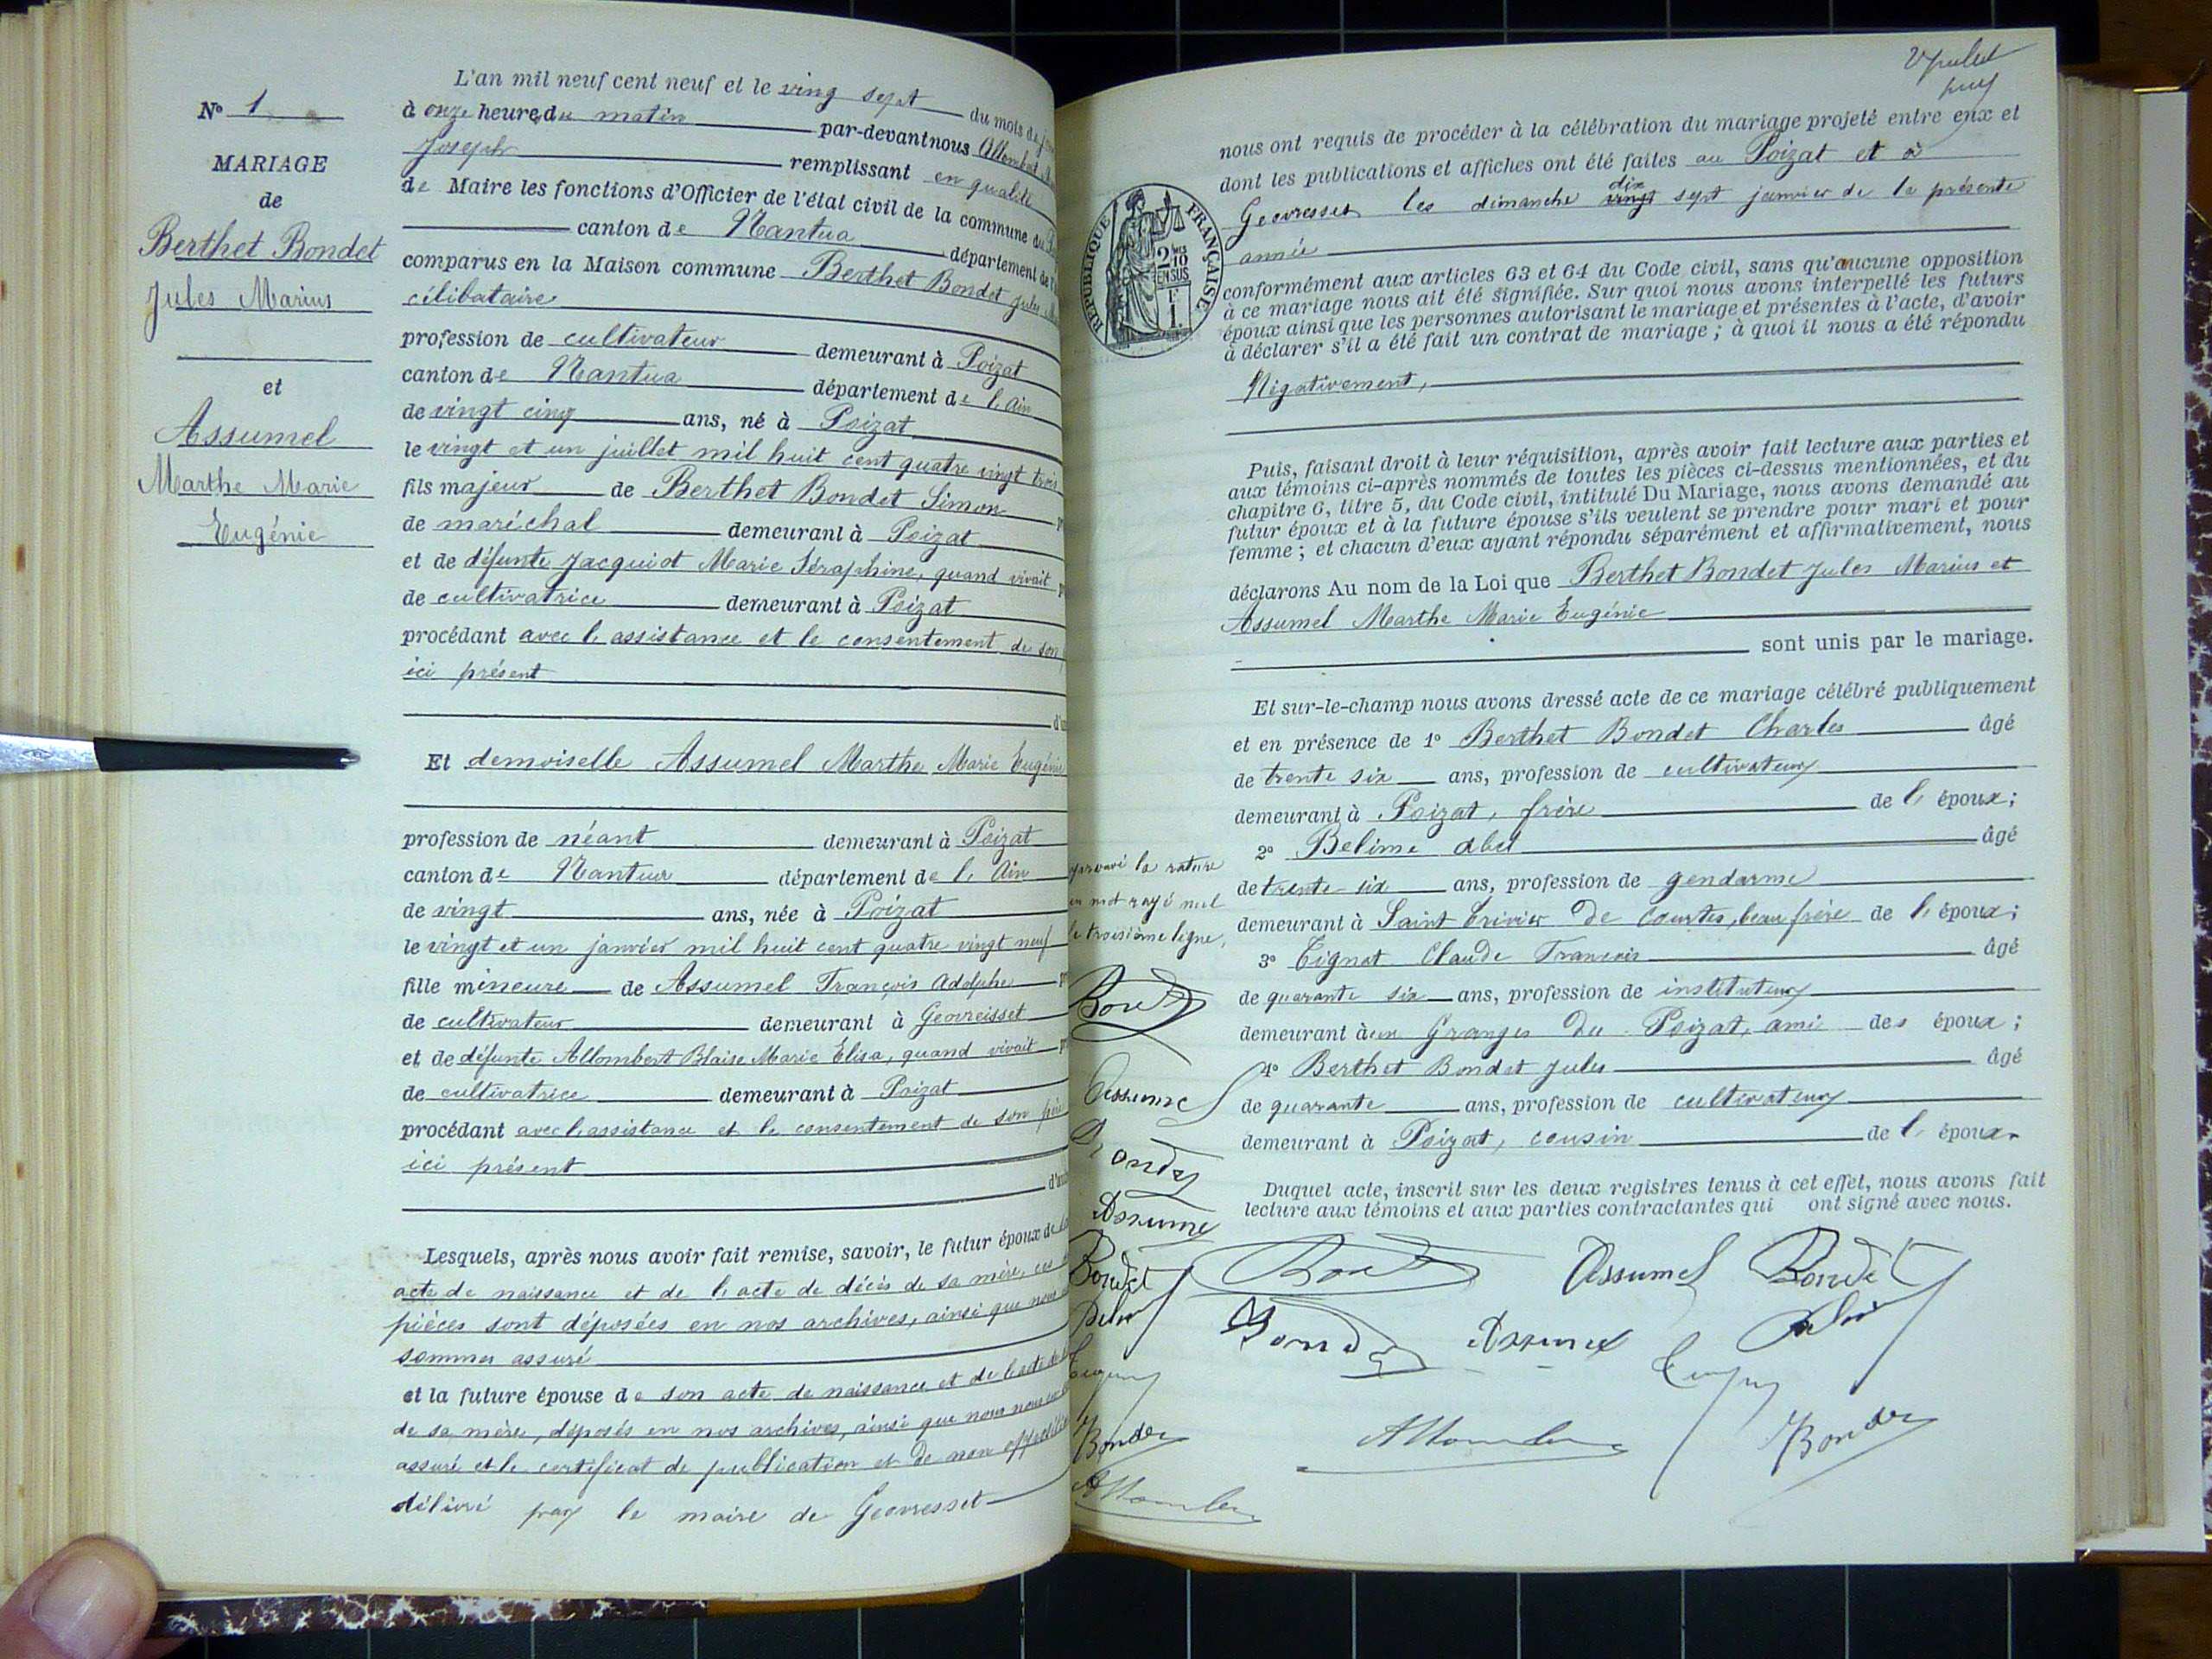 N° 1
MARIAGE
de
Berthet Bondet
Jules Marius
et
Assumel
Marthe Marie
Eugénie
L'an mil neuf cent neuf et le ving sept du mois de
à onze heures du matin par-devant nous
Joseph remplissant en qualité
de Maire les fonctions d'Officier de l'état civil de la commune du
canton de Nantua département de
comparus en la Maison commune Berthet Bondet Jules
célibataire
profession de cultivateur demeurant à Poizat
canton de Nantua département de l'Ain
de vingt cinq ans, né à Poizat
le vingt et un juillet mil huit cent quatre vingt trois
fils majeur de Berthet Bondet Simon
de maréchal demeurant à Poizat
et de défunte Jacquiot Marie Séraphine, quand vivait
de cultivatrice demeurant à Poizat
procédant avec l'assistance et le consentement de son
ici présent
Et demoiselle Assumel Marthe Marie Eugénie
profession de néant demeurant à Poizat
canton de Nantua département de l'Ain
de vingt ans, née à Poizat
le vingt et un janvier mil huit cent quatre vingt neuf
fille mineure de Assumel François Adolphe
de cultivateur demeurant à Geovreisset
et de défunte Allombert Blaise Marie Elisa, quand vivait
de cultivatrice demeurant à Poizat
procédant avec l'assistance et le consentement de son père
ici présent
Lesquels, après nous avoir fait remise, savoir, le futur époux de
acte de naissance et de l'acte de décès de sa mère, ces
pièces sont déposées en nos archives, ainsi que nous
sommes assuré
et la future épouse de son acte de naissance et de l'acte de
de sa mère, déposés en nos archives, ainsi que nous nous
assuré et le certificat de publication et de non opposition
délivré par le maire de Geovresset
nous ont requis de procéder à la célébration du mariage projeté entre eux et
dont les publications et affiches ont été faites au Poizat et à
dix
Geovresset les dimanche vingt sept janvier de la présente
année
RÉPUBLIQUE FRANÇAISE
2/10 EN SUS
1
conformément aux articles 63 et 64 du Code civil, sans qu'aucune opposition
à ce mariage nous ait été signifiée. Sur quoi nous avons interpellé les futurs
époux ainsi que les personnes autorisant le mariage et présentes à l'acte, d'avoir
à déclarer s'il a été fait un contrat de mariage ; à quoi il nous a été répondu
Négativement,
Puis, faisant droit à leur réquisition, après avoir fait lecture aux parties et
aux témoins ci-après nommés de toutes les pièces ci-dessus mentionnées, et du
chapitre 6, titre 5, du Code civil, intitulé Du Mariage, nous avons demandé au
futur époux et à la future épouse s'ils veulent se prendre pour mari et pour
femme ; et chacun d'eux ayant répondu séparément et affirmativement, nous
déclarons Au nom de la Loi que Berthet Bondet Jules Marius et
Assumel Marthe Marie Eugénie
sont unis par le mariage.
Et sur-le-champ nous avons dressé acte de ce mariage célébré publiquement
et en présence de 1° Berthet Bondet Charles âgé
de trente six ans, profession de cultivateur
demeurant à Poizat, frère de l'époux ;
2° Belime âgé
de trente-six ans, profession de gendarme
demeurant à Saint Trivier de Courtes, beau frère de l'époux ;
3° Tignat Claude François âgé
de quarante six ans, profession de instituteur
demeurant aux Granges du Poizat, ami des époux ;
4° Berthet Bondet Jules âgé
de quarante ans, profession de cultivateur
demeurant à Poizat, cousin de l'époux.
Duquel acte, inscrit sur les deux registres tenus à cet effet, nous avons fait
lecture aux témoins et aux parties contractantes qui ont signé avec nous.
la rature
mot rayé nul
troisième ligne,
Assumel
Assume
Bondet
Bonde
Assumel Bondet
Assumel